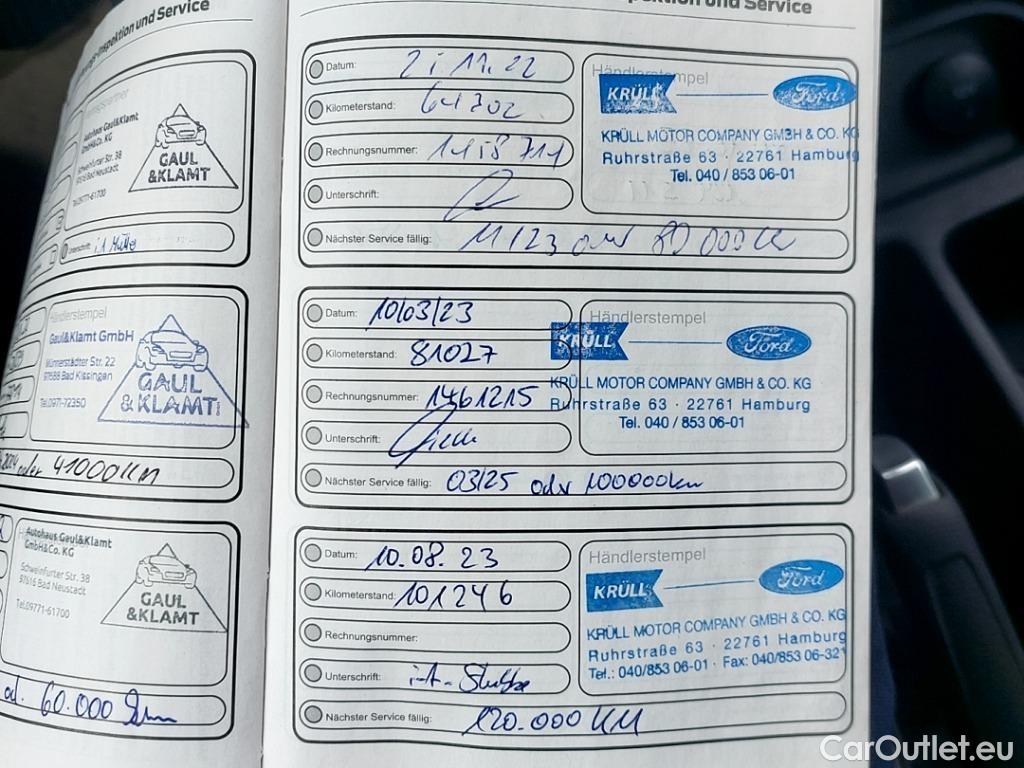 -Inspektion und Service
Autohaus Gaul&Klamt
GmbH&Co. KG
Schweinfurter Str. 38
97616 Bad Neustadt
Tel.09771-61700
GAUL
&KLAMT
Unterschrift:
Händlerstempel
Gaul&Klamt GmbH
Münnerstädter Str. 22
97688 Bad Kissingen
Tel.0971-72350
GAUL
&KLAMT
oder 41000KM
Autohaus Gaul&Klamt
GmbH&Co. KG
Schweinfurter Str. 38
97616 Bad Neustadt
Tel.09771-61700
GAUL
&KLAMT
od. 60.000
und Service
Datum: 21.11.22
Kilometerstand: 61702
Rechnungsnummer:
Unterschrift:
Nächster Service fällig: 11/23 oder 80 000
Händlerstempel
KRÜLL Ford
KRÜLL MOTOR COMPANY GMBH & CO. KG
Ruhrstraße 63 · 22761 Hamburg
Tel. 040 / 853 06-01
Datum: 10/03/23
Kilometerstand: 81027
Rechnungsnummer: 1461215
Unterschrift:
Nächster Service fällig: 03/25 oder 100000km
Händlerstempel
KRÜLL Ford
KRÜLL MOTOR COMPANY GMBH & CO. KG
Ruhrstraße 63 · 22761 Hamburg
Tel. 040 / 853 06-01
Datum: 10.08.23
Kilometerstand: 101246
Rechnungsnummer:
Unterschrift: i.A.
Nächster Service fällig: 120.000 KM
Händlerstempel
KRÜLL Ford
KRÜLL MOTOR COMPANY GMBH & CO. KG
Ruhrstraße 63 · 22761 Hamburg
Tel.: 040/853 06-01 · Fax: 040/853 06-321
CarOutlet.eu